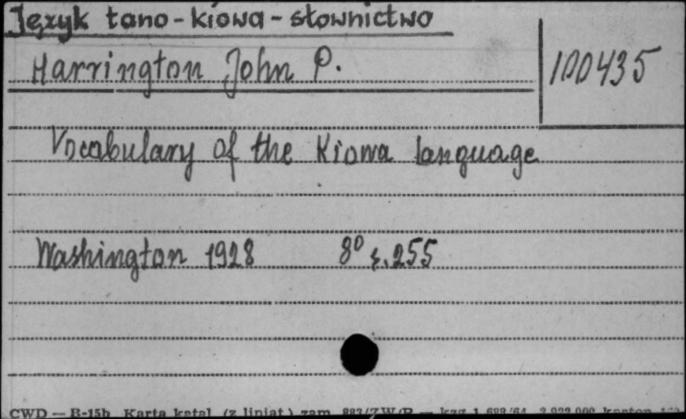 Język tano-kiowa-słownictwo
Harrington John P.
100435
Vocabulary of the Kiowa language
Washington 1928 8° s. 255
CWD — B-15b Karta katal. (z liniat.) zam.